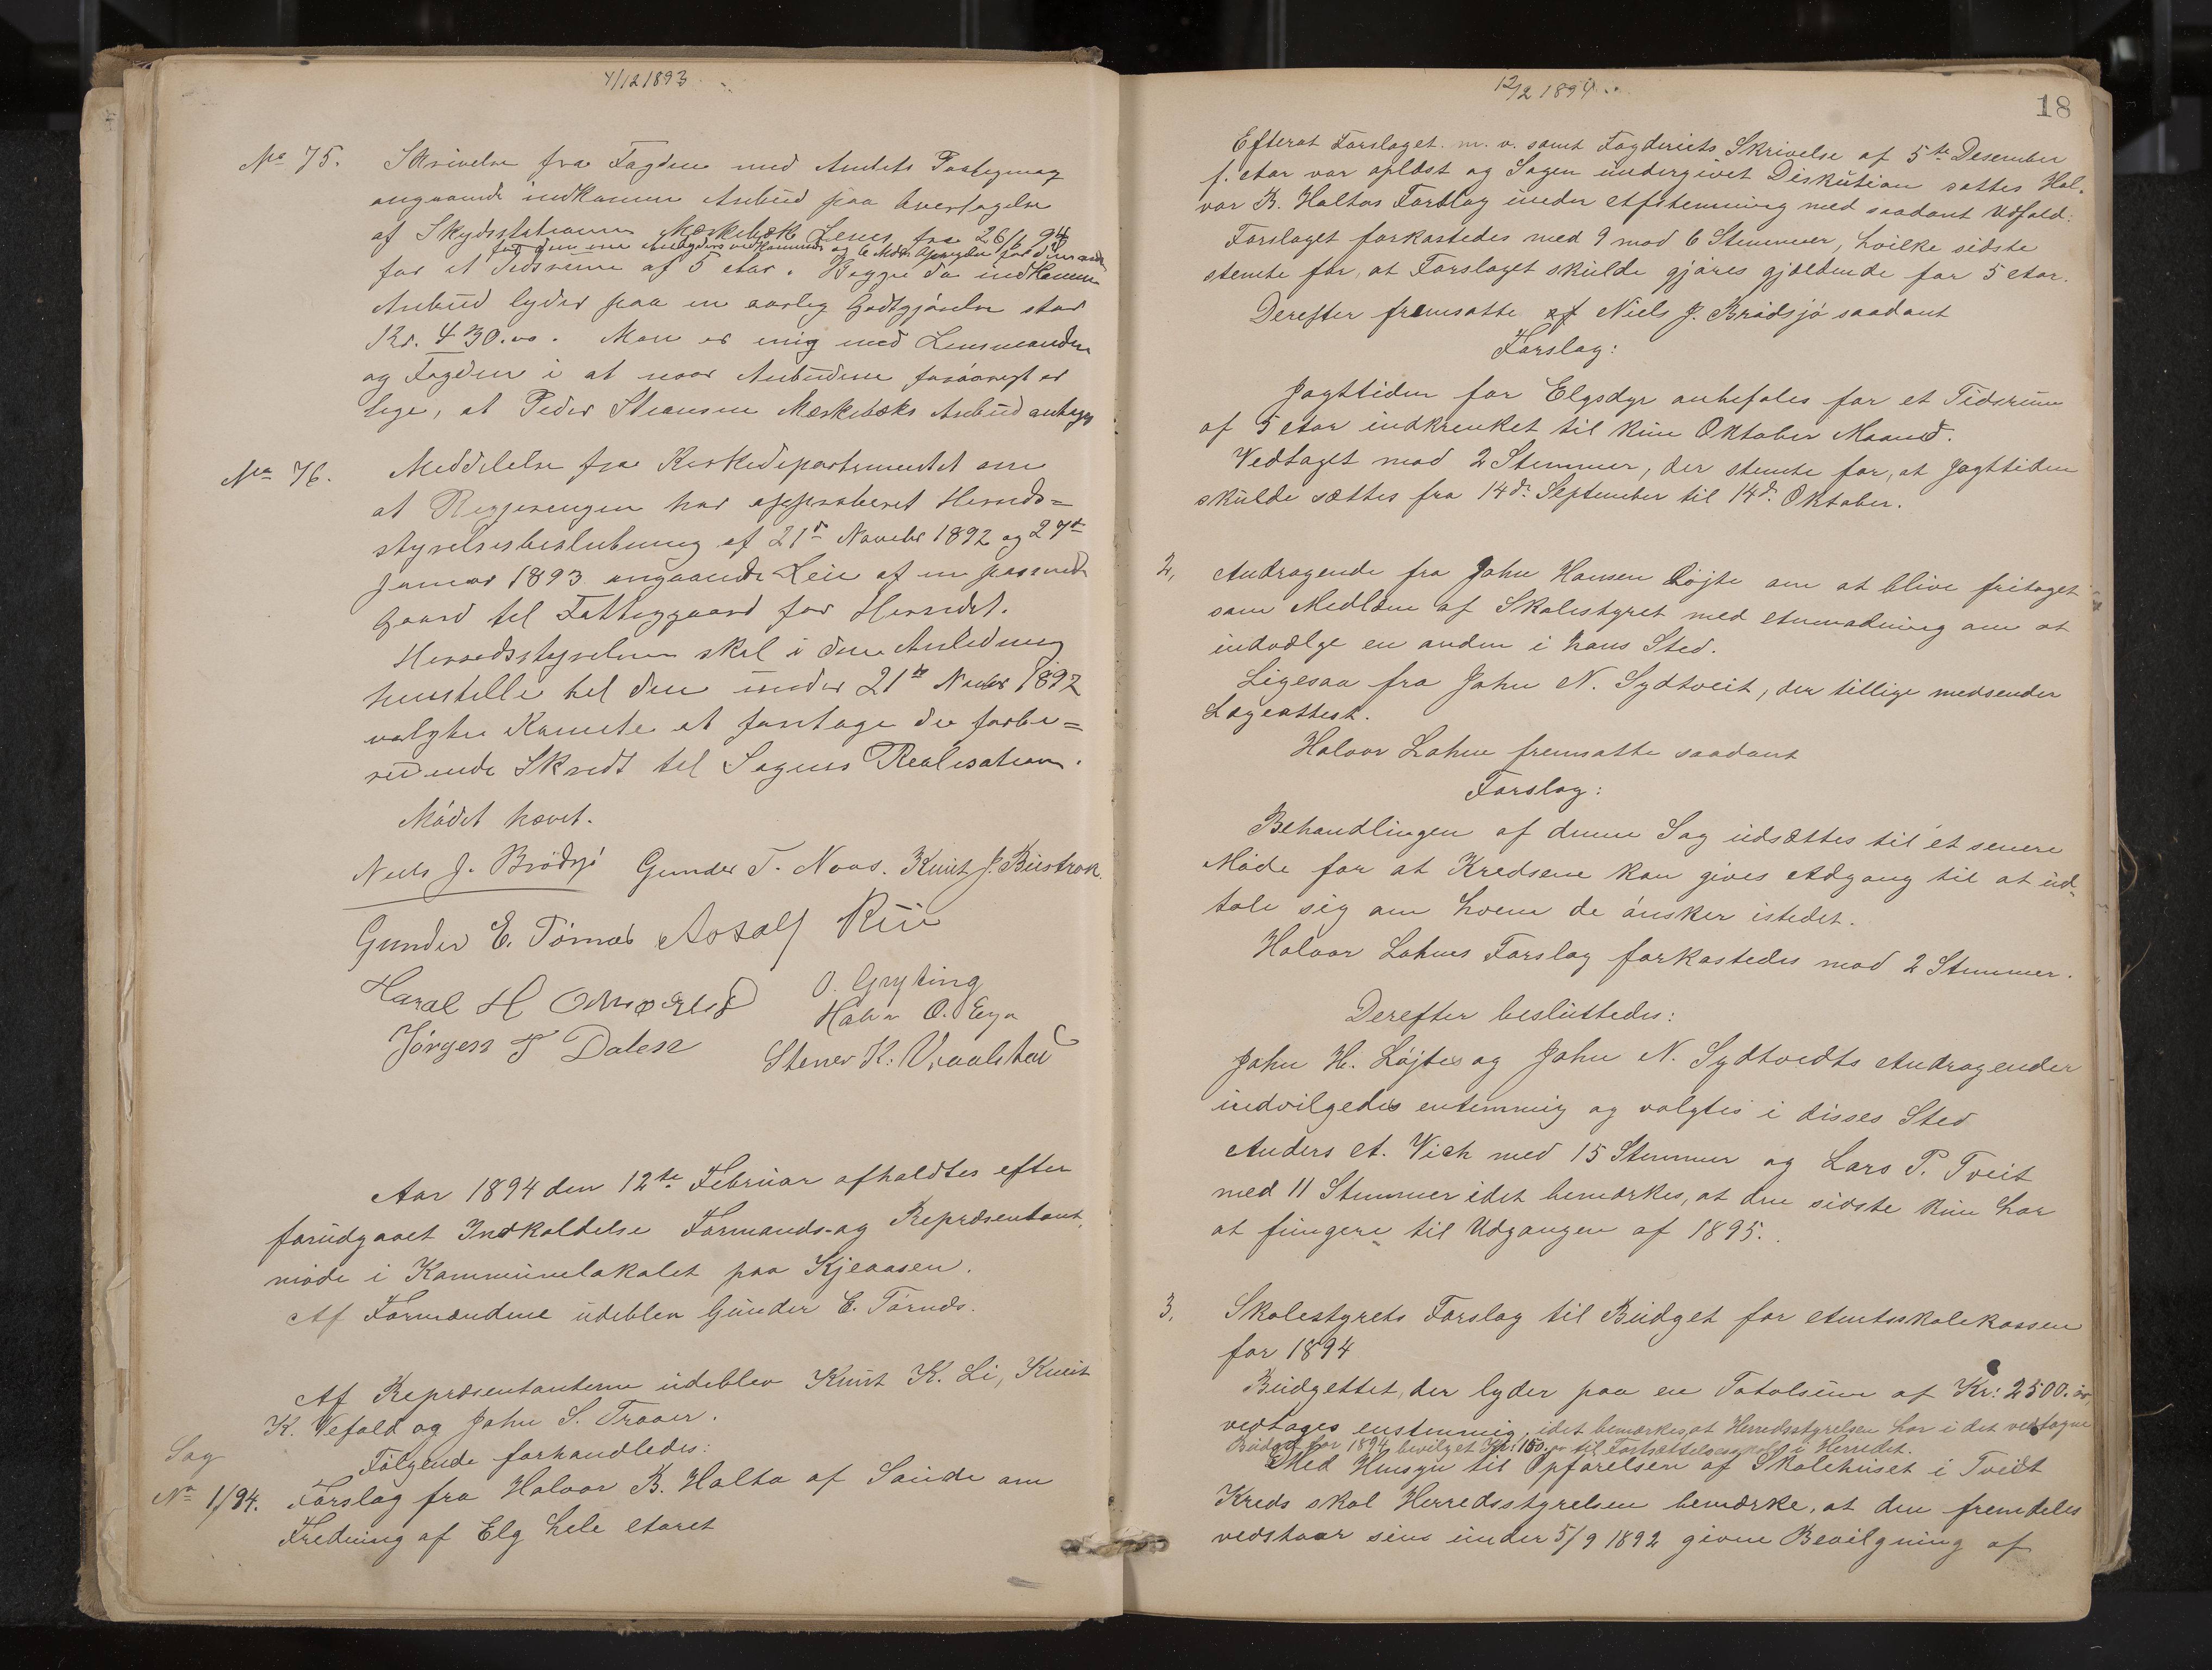 4/12 1893
No 75. Skrivelse fra Fogden med Amtets Paategning
angaaende indkomne Anbud paa Overtagelse
af Skydsstationen Mærkebæk Lenes fra 26/6 94
for et Tidsrum af 5 Aar. Begge de indkomne
Anbud lyder paa en aarlig Godtgjørelse stor
Kr. 430.00. Man er enig med Lensmanden
og Fogden i at naar Anbudene forøvrigt er
lige, at Peder Steansen Mærkebæks Anbud antages
No 76. Meddelelse fra Kirkedepartementet om
at Regjeringen har approberet Herreds=
styrelsesbeslutning af 21de Novebr 1892 og 27de
Januar 1893 angaaende Leie af en passende
Gaard til Fattiggaard for Herredet.
Herredsstyrelsen skal i den Anledning
henstille til den under 21de Novbr 1892
valgte Komite at foretage de forbe=
redende Skridt til Sagens Realisation.
Mødet hævet.
Niels J. Brödsjö Gunder T. Noas. Knut J. Bustrak.
Gunder E. Törnæs Adsalf Rui
Haral H O
O. Gryting
Halvor O. Eeya
Jörgen T Dalen
Stener K. Vraalstad
Aar 1894 den 12te Februar afholdtes efter
forudgaaet Indkaldelse Formands- og Repræsentant,
møde i Kommunelokalet paa Kjeaasen.
Af Formændene udeblev Gunder E. Törnæs.
Af Repræsentanterne udeblev Knut K. Li, Knut
K. Vefald og John S. Traaer.
Følgende forhandledes:
Sag
No 1/94. Forslag fra Halvor B. Holta af Saude om
Fredning af Elg hele Aaret
12/2 1894
18
Efterat Forslaget m. v. samt Fogderiets Skrivelse af 5te Desember
f. Aar var oplæst og Sagen undergivet Diskution sattes Hal-
vor B. Holtas Forslag under Afstemning med saadant Udfald:
Forslaget forkastedes med 9 mod 6 Stemmer, hvilke sidste
stemte for, at Forslaget skulde gjøres gjældende for 5 Aar.
Derefter fremsatte af Niels J. Brödsjö saadant
Forslag:
Jagttiden for Elgsdyr anbefales for et Tidsrum
af 5 Aar indkrenket til kun Oktober Maaned.
Vedtaget mod 2 Stemmer, der stemte for, at Jagttiden
skulde sættes fra 14de September til 14de Oktober.
2, Andragende fra John Hansen Löjte om at blive fritaget
som Medlem af Skolestyret med Anmodning om at
indvælge en anden i hans Sted.
Ligesaa fra John N. Sydtveit, der tillige medsender
Lægeattest.
Halvor Lahne fremsatte saadant
Forslag:
Behandlingen af denne Sag udsættes til et senere
Møde for at Kredsene kan gives Adgang til at ud-
tale sig om hvem de ønsker istedet.
Halvor Lahnes Forslag forkastedes mod 2 Stemmer.
Derefter besluttedes:
John H. Löjtes og John N. Sydtvedts Andragender
indvilgedes enstemmig og valgtes i disses Sted
Anders A. Vich med 15 Stemmer og Lars P. Tveit
med 11 Stemmer idet bemærkes, at den sidste kun har
at fungere til Udgangen af 1895.
3, Skolestyrets Forslag til Budget for Amtsskolekassen
for 1894
Budgettet, der lyder paa en Totalsum af Kr: 2500.00,
vedtages enstemmig, idet bemærkes, at Herredsstyrelsen har i det vedtagne
Budget for 1894 bevilget Kr: 150.00 til Fortsættelsesskole i Herredet.
Med Hensyn til Opførelsen af Skolehuset i Tveidt
Kreds skal Herredsstyrelsen bemærke, at den fremdeles
vedstaar sin under 5/9 1892 givne Bevilgning af